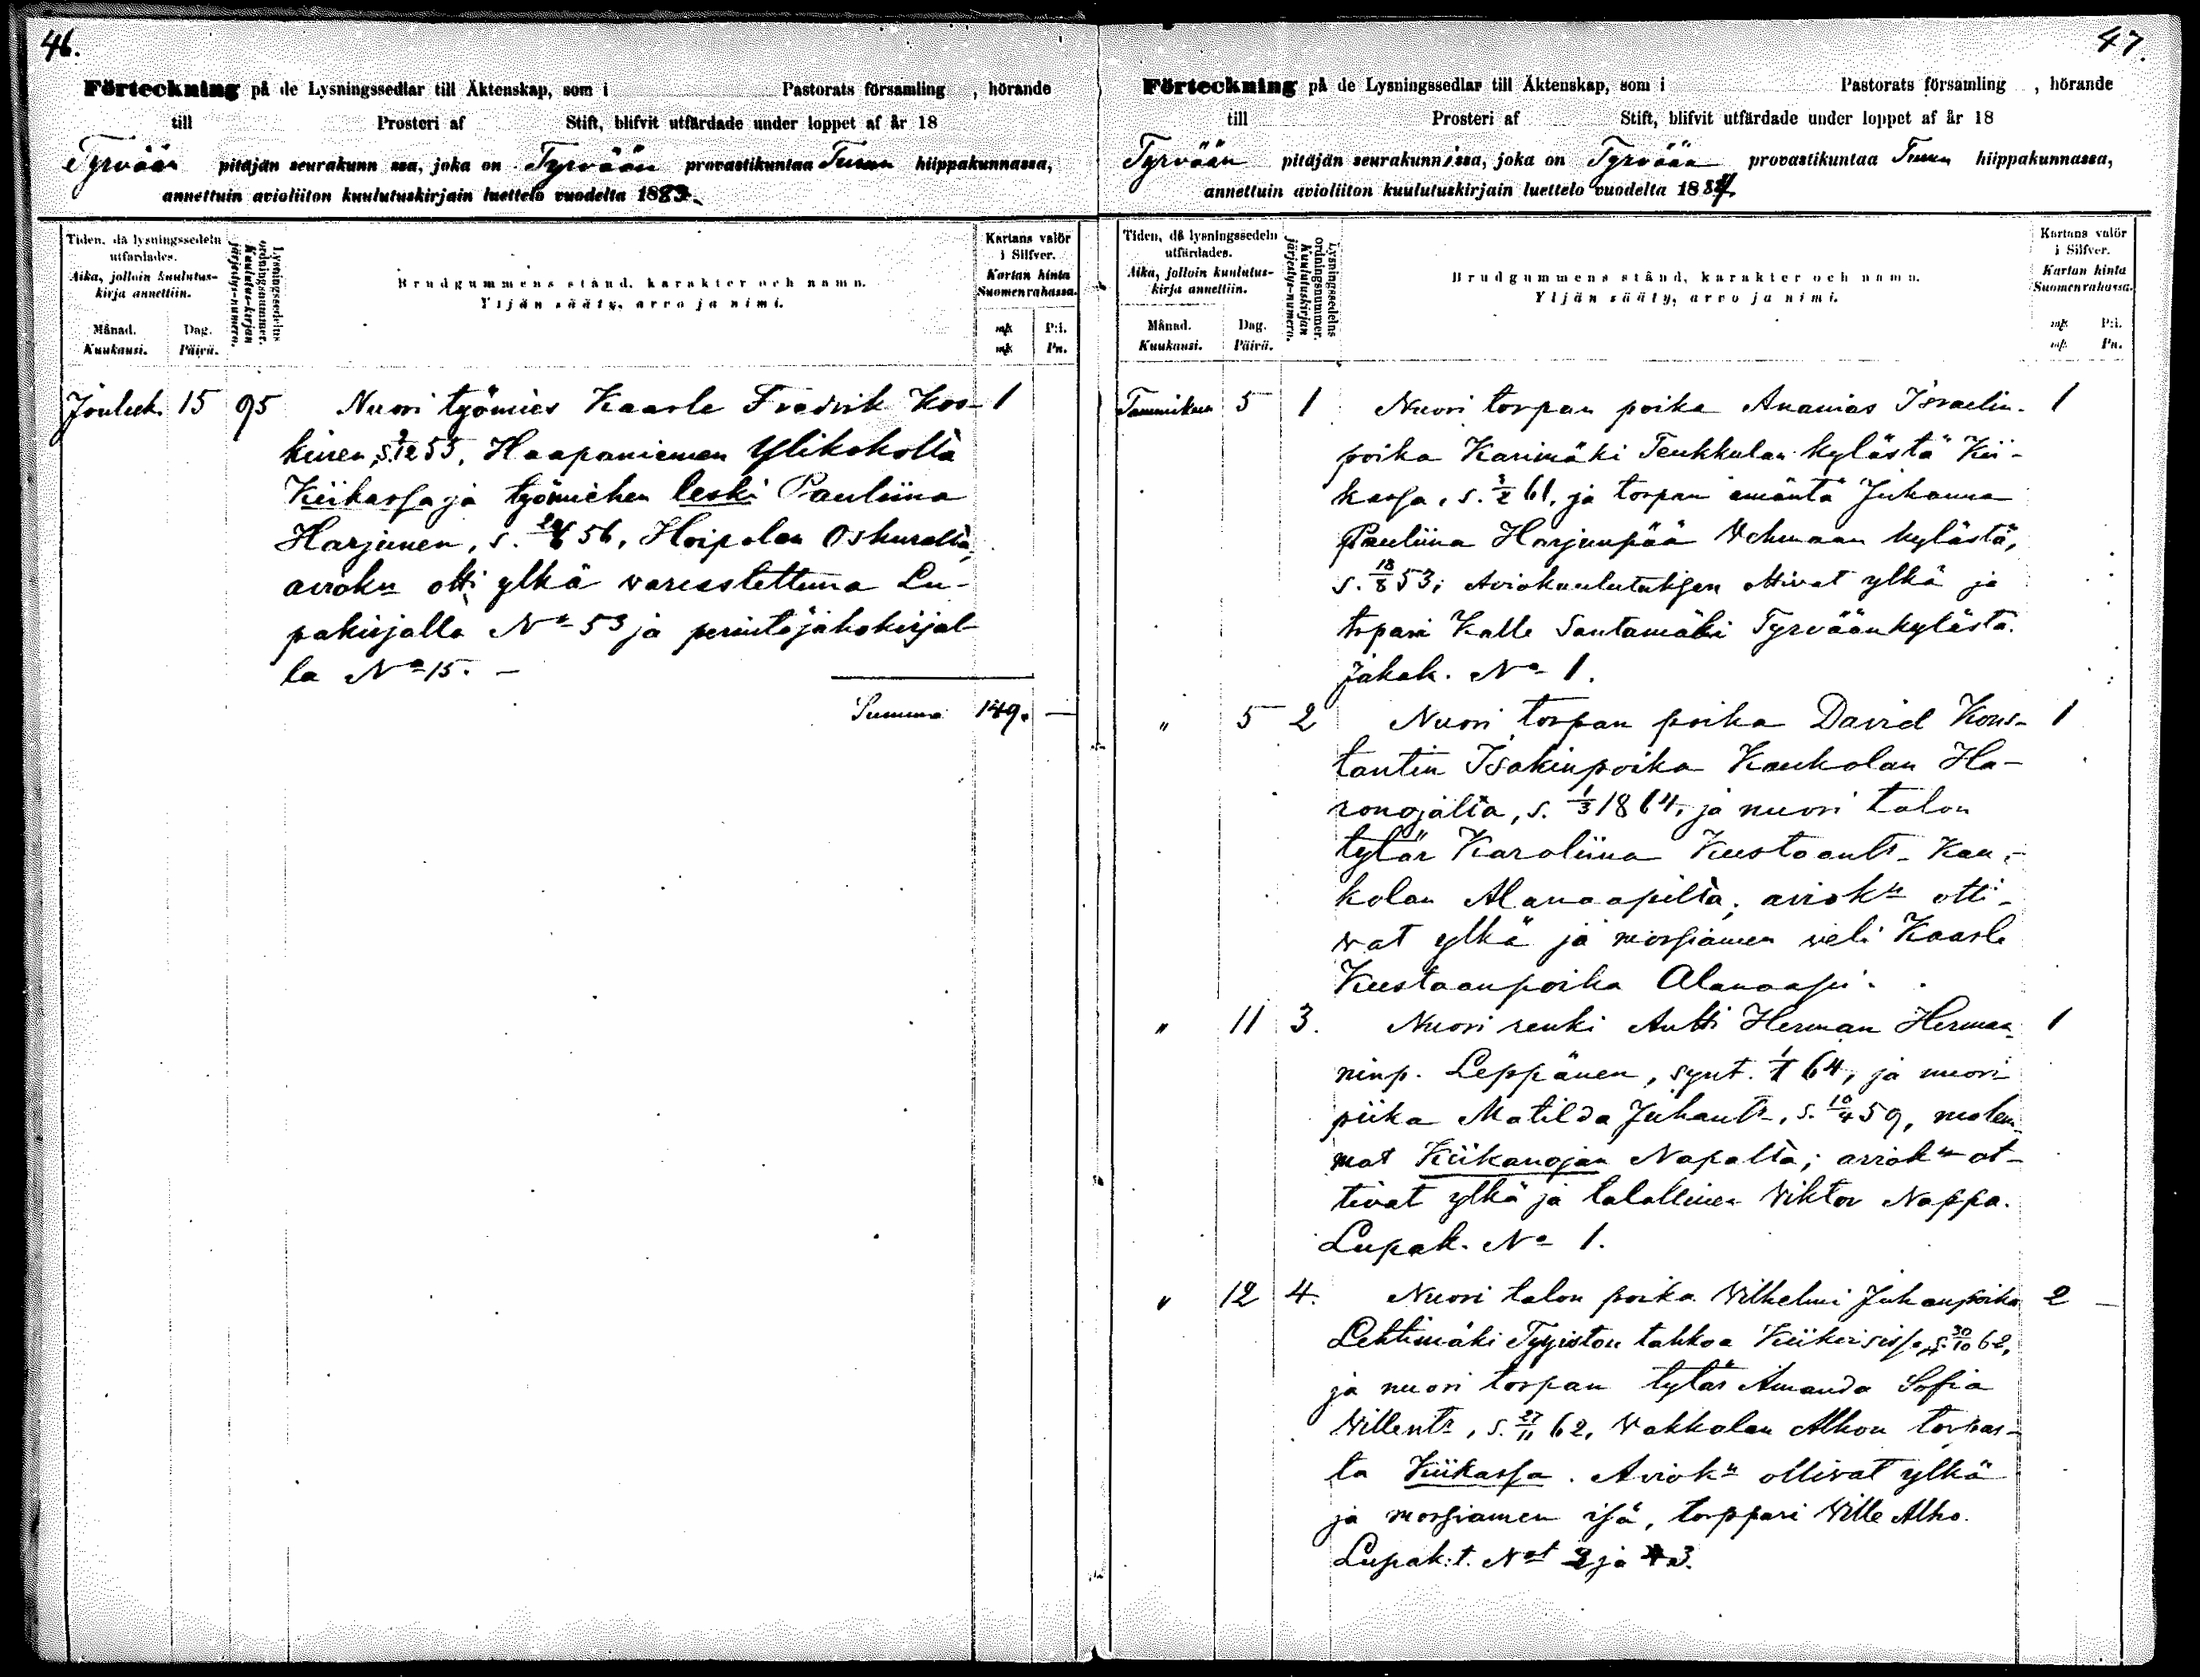 46.
Förteckning på de Lysningssedlar till Äktenskap, som i Pastorats församling , hörande
till Prosteri af Stift, blifvit utfärdade under loppet af år 18
Tyrvään pitäjän seurakunn ssa, joka on Tyrvään provastikuntaa Turun hiippakunnassa,
annettuin avioliiton kuulutuskirjain luettelo vuodelta 1883.
Tiden, då lysningssedeln
utfärdades.
Aika, jolloin kuulutus-
kirja annettiin.
Månad.
Kuukausi.
Dag.
Päivä.
Lysningssedelns
ordningsnummer.
Kuulutus-kirjan
järjestys-numero.
Brudgummens stånd, karakter och namn.
Yljän sääty, arvo ja nimi.
Kartans valör
i Silfver.
Kartan hinta
Suomen rahassa.
mk P:i.
mk Pn.
Jouluk. 15 95 Nuori työmies Kaarle Fredrik Kos- 1
kinen, s. 9/12 55, Haapaniemen Ylikokolta
Kiikassa ja työmiehen leski Pauliina
Harjunen, s. 56, Hoipolan Oskuralta,
aviokn otti ylkä varusstettuna Lu-
pakirjalla No 53 ja perintöjakokirjal-
la No 15. -
Summa 149. -
47.
Förteckning på de Lysningssedlar till Äktenskap, som i Pastorats församling , hörande
till Prosteri af Stift, blifvit utfärdade under loppet af år 18
Tyrvään pitäjän seurakunnissa, joka on Tyrvään provastikuntaa Turun hiippakunnassa,
annettuin avioliiton kuulutuskirjain luettelo vuodelta 1884.
Tiden, då lysningssedeln
utfärdades.
Aika, jolloin kuulutus-
kirja annettiin.
Månad.
Kuukausi.
Dag.
Päivä.
Lysningssedelns
ordningsnummer.
Kuulutuskirjan
järjestys-numero.
Brudgummens stånd, karakter och namn.
Yljän sääty, arvo ja nimi.
Kartans valör
i Silfver.
Kartan hinta
Suomen rahassa.
mk P:i.
mk Pn.
Tammikuu 5 1 Nuori torpan poika Ananias Israelin- 1
poika Karimäki Teukkulan kylästä Kii-
kassa, s. 3/2 61, ja torpan emäntä Juhanna
Pauliina Harjunpää Vehmaan kylästä,
s. 18/8 53; Aviokuulutuksen ottivat ylkä ja
torpari Kalle Santamäki Tyrväänkylästä.
Jakok. No 1.
" 5 2 Nuori torpan poika David Kons- 1
tantin Isakinpoika Kaukolan Ha-
ronojalta, s. 1/3 1864, ja nuori talon
tytär Karoliina Kustaantr. Kau-
kolan Alanaapilta; aviokn otti-
vat ylkä ja morsiamen veli Kaarle
Kustaanpoika Alanaapi.
" 11 3. Nuori renki Antti Herman Herman- 1
ninp. Leppänen, synt. 1/1 64, ja nuori
piika Matilda Juhantr, s. 10/4 59, molem-
mat Kiikanojan Napalta; aviokn ot-
tivat ylkä ja talollinen Viktor Nappa.
Lupak. No 1.
" 12 4. Nuori talon poika Vilhelmi Juhanpoika 2 -
Lehtimäki Tyyiston tahkoa Kiikoisissa, s. 30/10 62,
ja nuori torpan tytär Amanda Sofia
Villentr, s. 27/11 62, Vakkalan Alhon torpas-
ta Kiikassa. Aviokn ottivat ylkä
ja morsiamen isä, torppari Ville Alho.
Lupak:t. Not 2 ja 3.